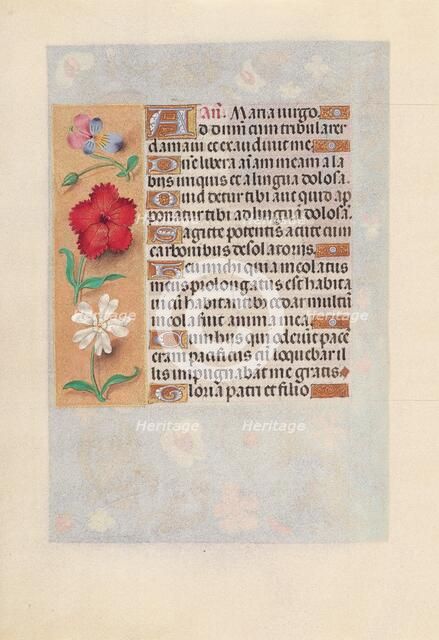 Añ. Maria uirgo.
Ad dnm̄ cum tribularer
clamaui et exaudiuit me.
Dn̄e libera aīam meam a la
biis iniquis et a lingua dolosa.
Quid detur tibi aut quid ap
ponatur tibi ad linguā dolosā.
Sagitte potentis acute cum
carbonibus desolatoriis.
Heu michi quia incolatus
meus prolongatus est habita
ui cū habitantibꝰ cedar multū
incola fuit anima mea.
Cum hiis qui oderūt pacē
eram pacificus cū loquebar il
lis impugnabāt me gratis.
Gloria patri et filio
Heritage
Heritage
Heritage
Heritage